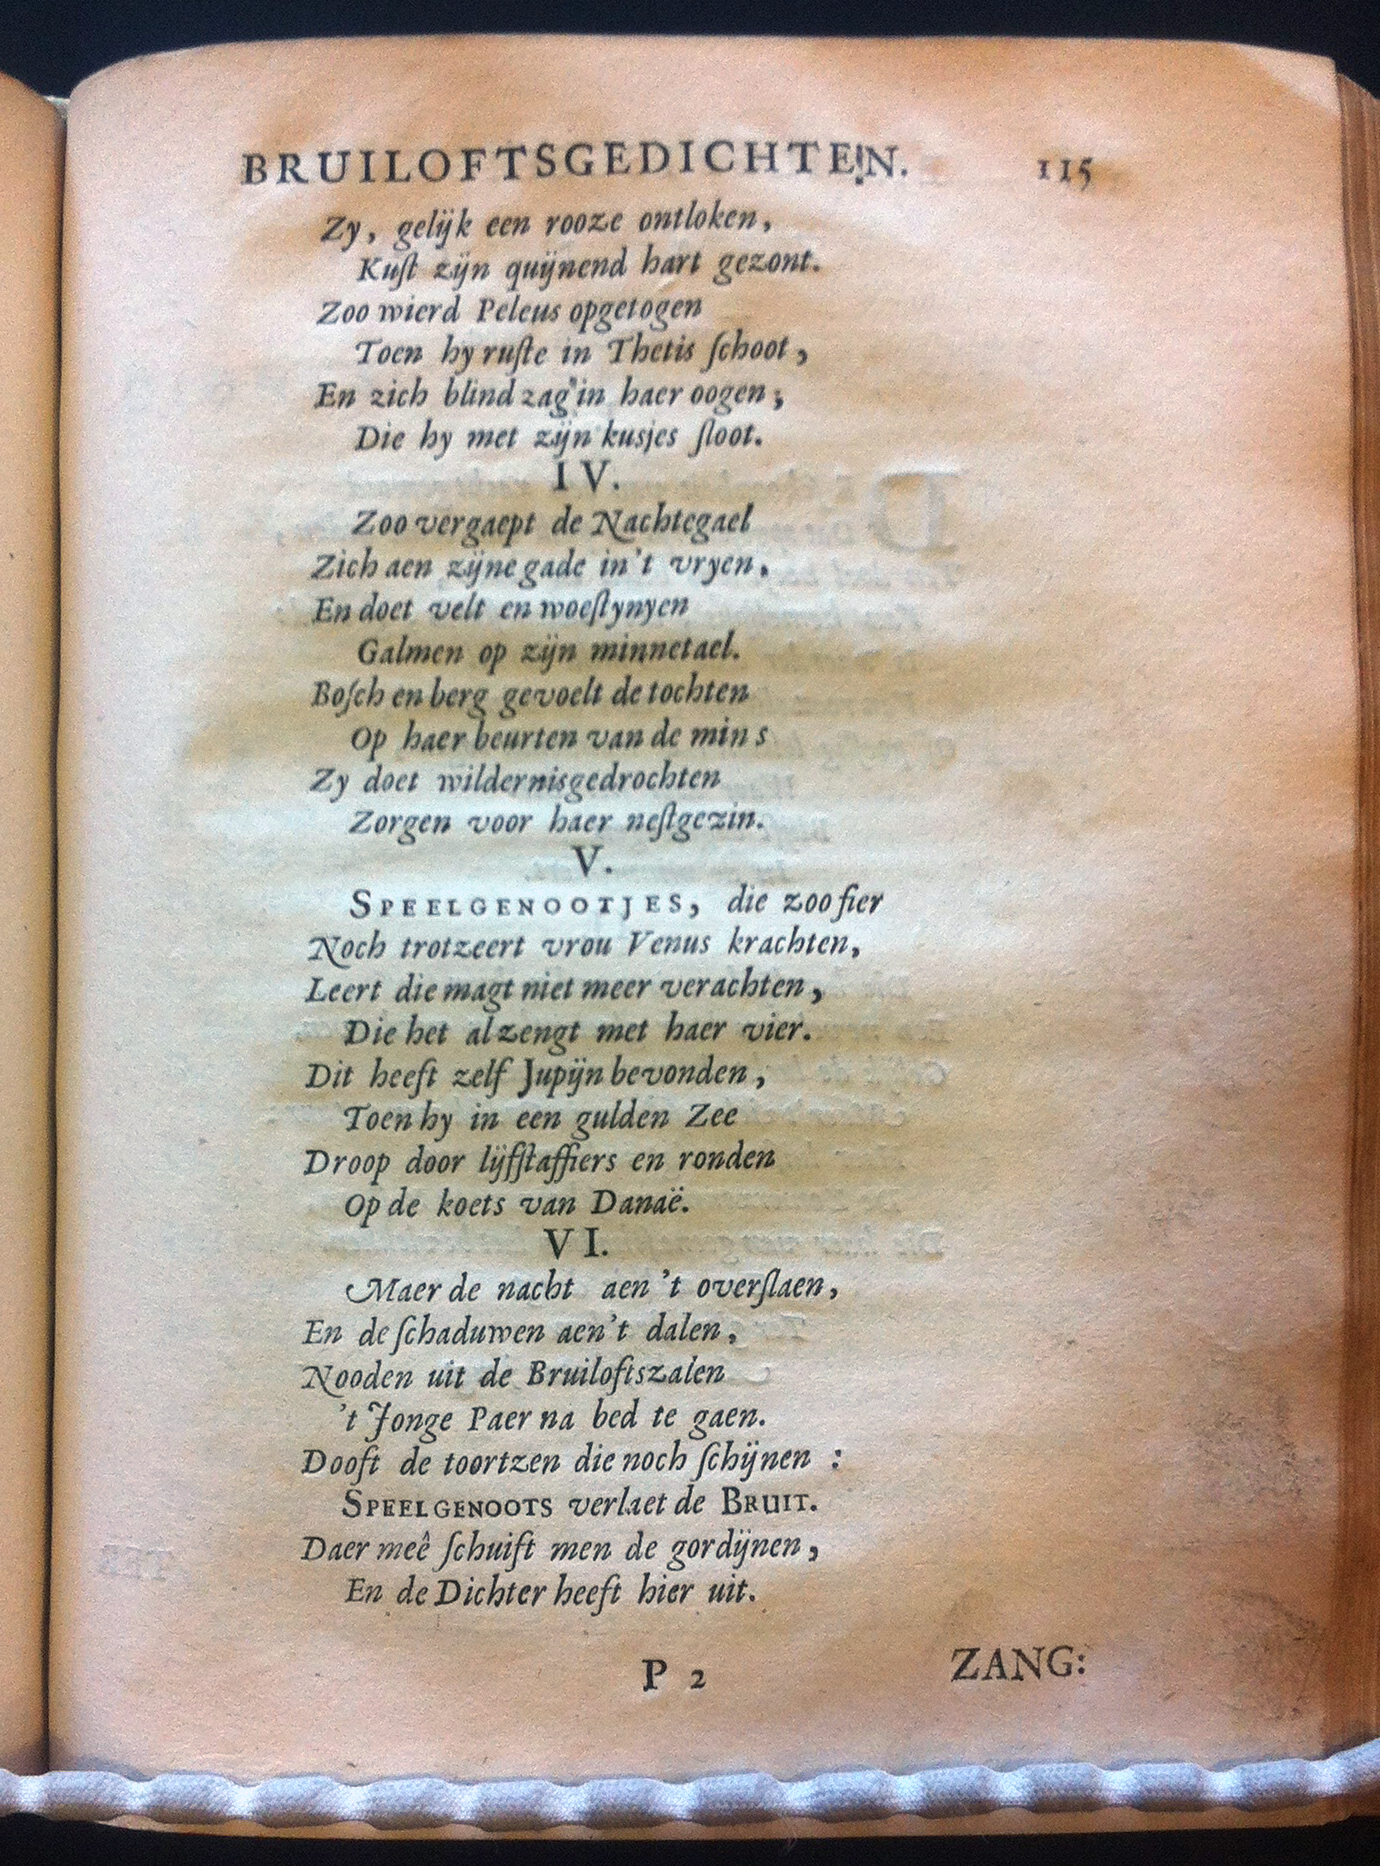 BRUILOFTSGEDICHTEN. 115
Zy, gelijk een rooze ontloken,
Kuſt zijn quijnend hart gezont.
Zoo wierd Peleus opgetogen
Toen hy ruſte in Thetis ſchoot,
En zich blind zag in haer oogen;
Die hy met zijn kusjes ſloot.
IV.
Zoo vergaept de Nachtegael
Zich aen zijne gade in 't vryen,
En doet velt en woeſtynyen
Galmen op zijn minnetael.
Boſch en berg gevoelt de tochten
Op haer beurten van de min s
Zy doet wildernisgedrochten
Zorgen voor haer neſtgezin.
V.
SPEELGENOOTJES, die zoo fier
Noch trotzeert vrou Venus krachten,
Leert die magt niet meer verachten,
Die het al zengt met haer vier.
Dit heeft zelf Jupijn bevonden,
Toen hy in een gulden Zee
Droop door lijfſtaffiers en ronden
Op de koets van Danaë.
VI.
Maer de nacht aen 't overſlaen,
En de ſchaduwen aen 't dalen,
Nooden uit de Bruiloftszalen
't Jonge Paer na bed te gaen.
Dooft de toortzen die noch ſchijnen :
SPEELGENOOTS verlaet de BRUIT.
Daer meê ſchuift men de gordijnen,
En de Dichter heeft hier uit.
P 2 ZANG: